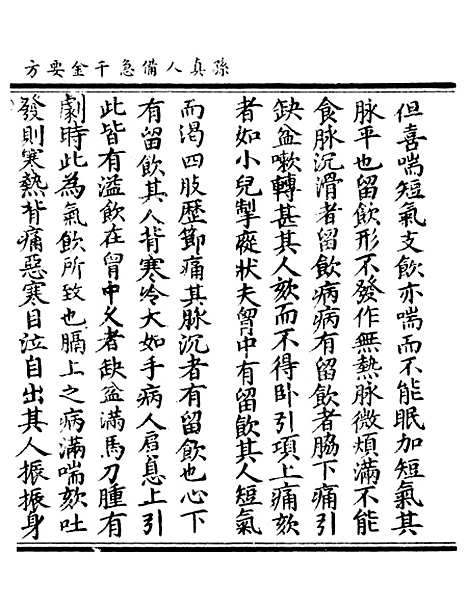 孫真人備急千金要方
但喜喘短氣支飲亦喘而不能眠加短氣其
脉平也留飲形不發作無熱脉微煩滿不能
食脉沉滑者留飲病病有留飲者脇下痛引
缺盆嗽轉甚其人欬而不得卧引項上痛欬
者如小兒掣瘲狀夫胷中有留飲其人短氣
而渴四肢歷節痛其脉沉者有留飲也心下
有留飲其人背寒冷大如手病人肩息上引
此皆有溢飲在胷中久者缺盆滿馬刀腫有
劇時此為氣飲所致也膈上之病滿喘欬吐
發則寒熱背痛惡寒目泣自出其人振振身